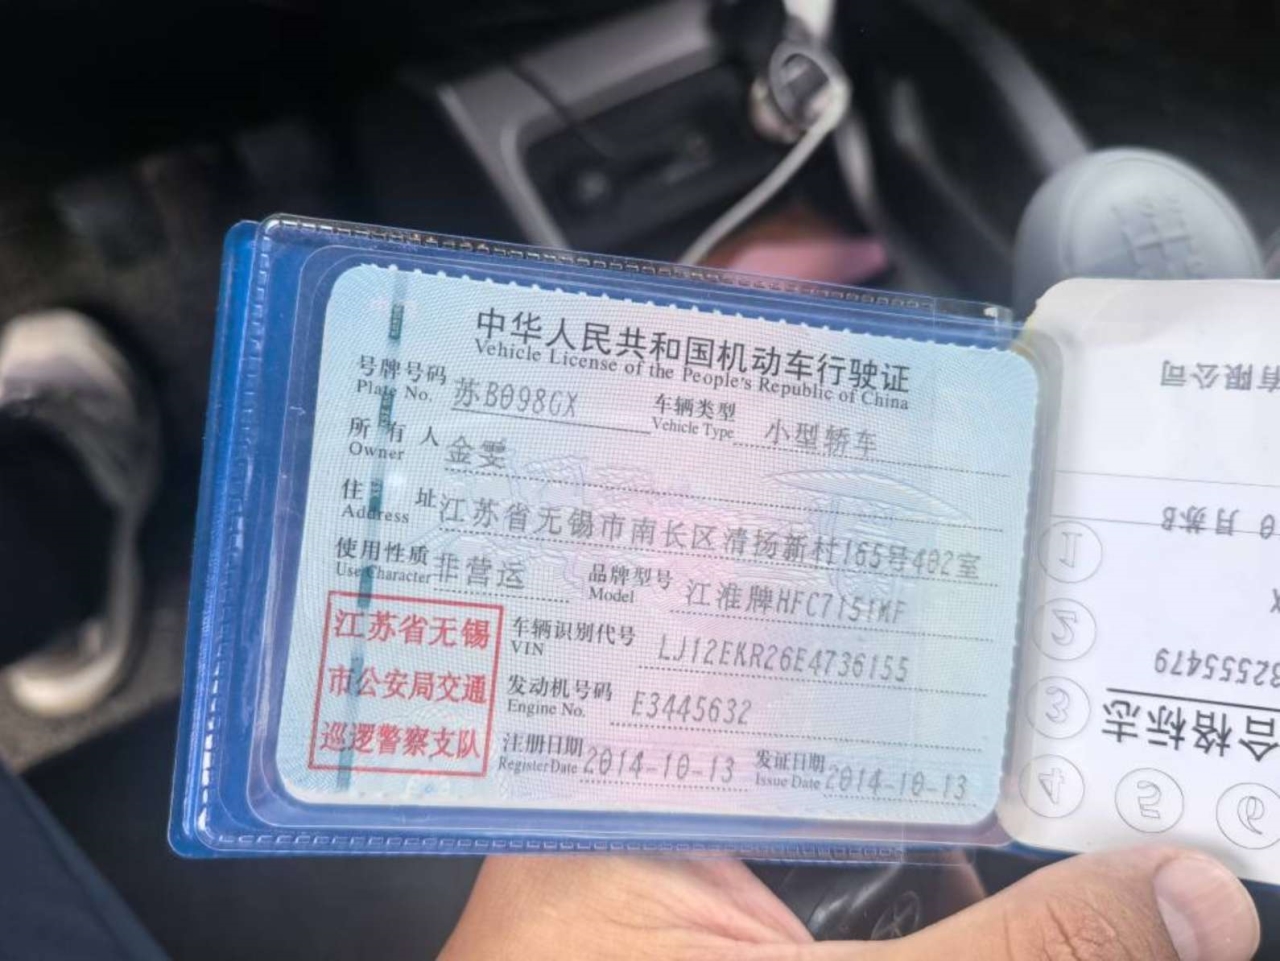 中华人民共和国机动车行驶证
Vehicle License of the People's Republic of China
号牌号码 苏B098GX 车辆类型 小型轿车
Plate No. Vehicle Type
所有人 金雯
Owner
住址 江苏省无锡市南长区清扬新村165号402室
Address
使用性质 非营运 品牌型号 江淮牌HFC7151MF
Use Character Model
江苏省无锡
市公安局交通
巡逻警察支队
车辆识别代号 LJ12EKR26E4736155
VIN
发动机号码 E3445632
Engine No.
注册日期 2014-10-13 发证日期 2014-10-13
Register Date Issue Date
有限公司
月苏B
32555479
合格标志
1
2
3
4
5
6